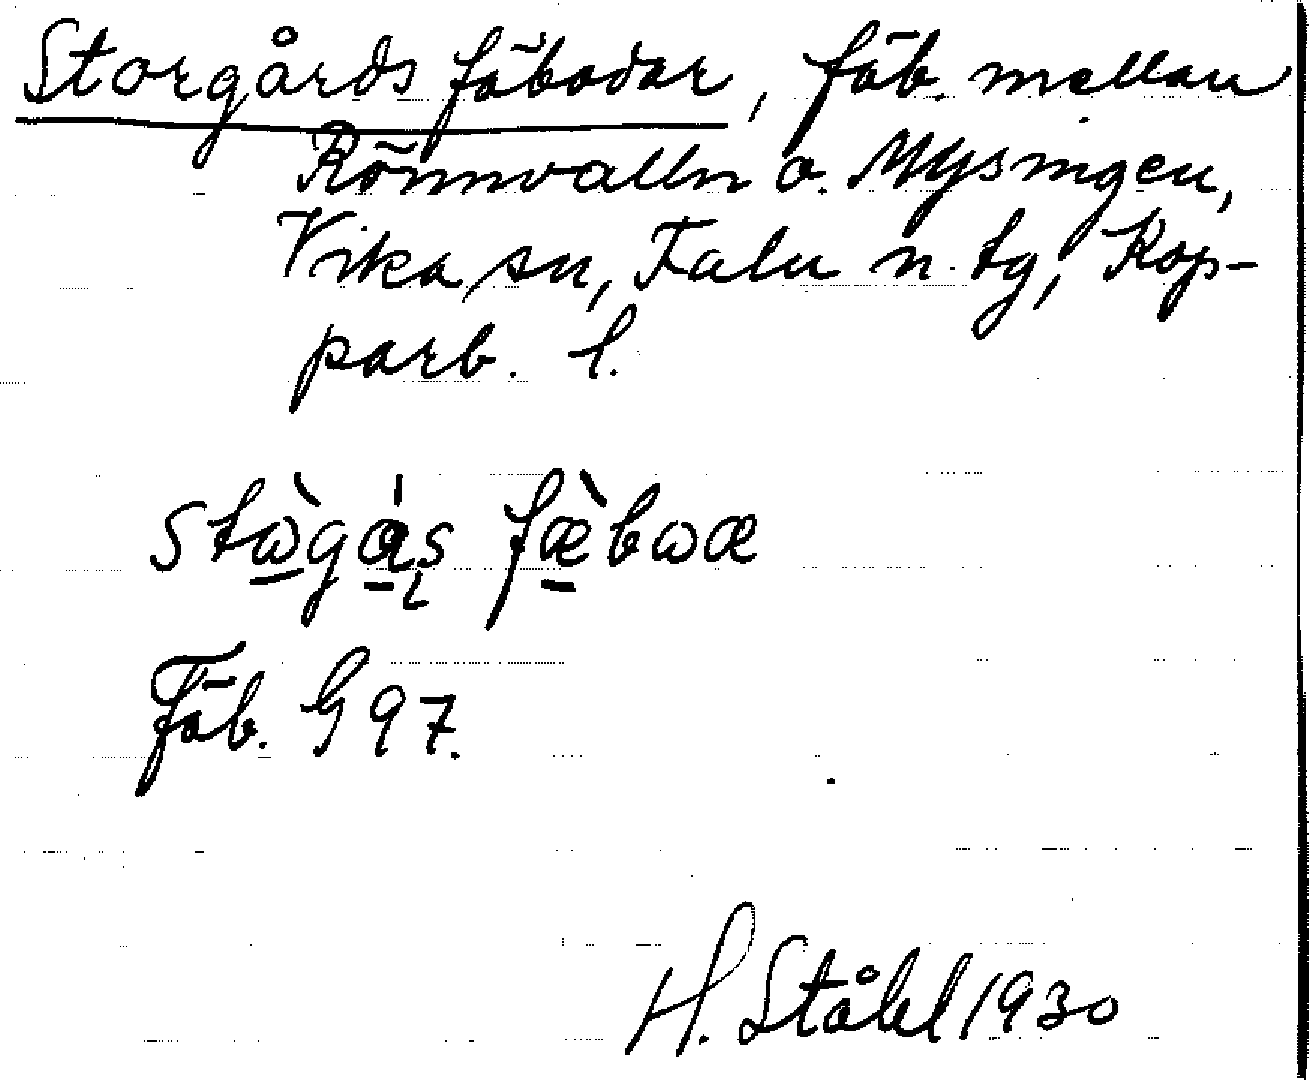 Storgårds fäbodar, fäb. mellan
Rönnvalln o. Mysingen,
Vika sn, Falu n. tg, Kop-
parb. l.
stὼ̲gά̲ʂ fæ̲̀bωæ
Fäb. G 97.
H. Ståhl 1930